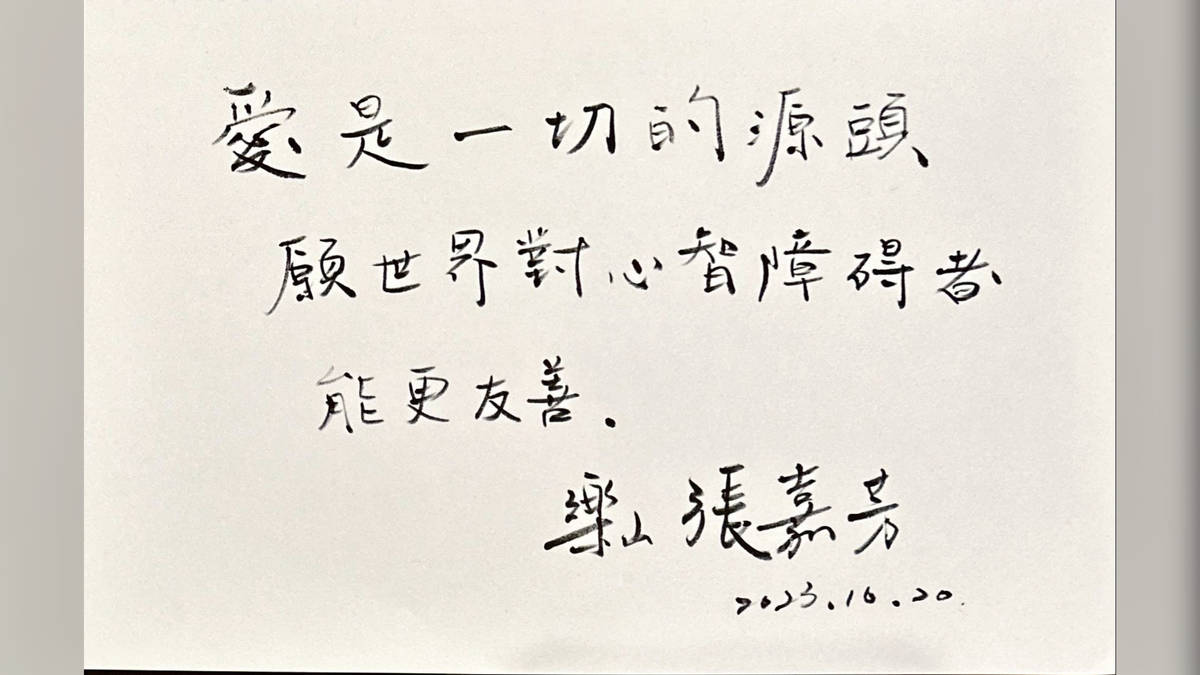 愛是一切的源頭
願世界對心智障碍者
能更友善.
樂山 張嘉芳
2023.10.20.